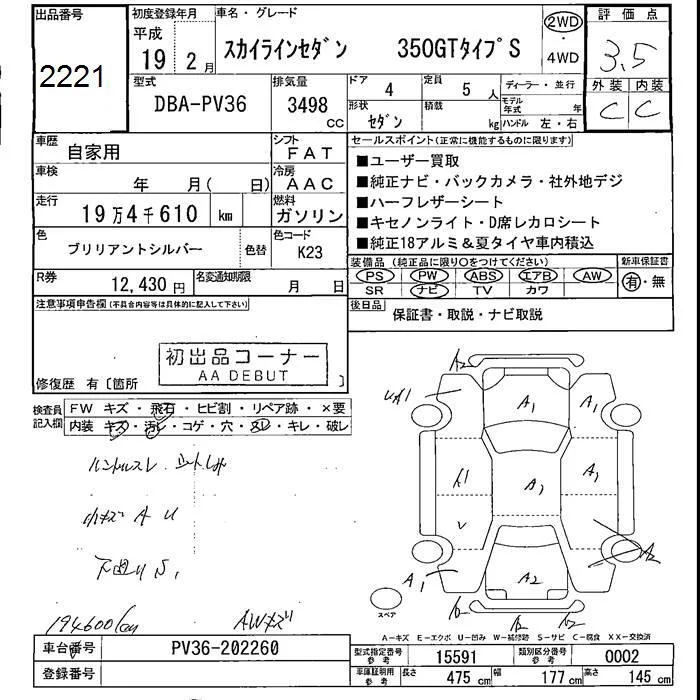 出品番号 初度登録年月 車名・グレード 評価点
2221 平成 19年 2月 スカイラインセダン 350GTタイプS 2WD・4WD 3.5
型式 DBA-PV36 排気量 3498 CC ドア 4 定員 5人 ディーラー・並行 外装 内装
形状 セダン 積載 kg モデル年式 年 ハンドル 左・右 C C
車歴 自家用 シフト FAT セールスポイント(正常に機能するものに限ります)
車検 年 月( 日) 冷房 AAC ■ユーザー買取
走行 19万4千610 km 燃料 ガソリン ■純正ナビ・バックカメラ・社外地デジ
■ハーフレザーシート
■キセノンライト・D席レカロシート
色 ブリリアントシルバー 色替 色コード K23 ■純正18アルミ&夏タイヤ車内積込
R券 12,430円 名変通知期限 月 日 装備品(純正品に限り○をつけてください) 新車保証書
PS PW ABS エアB AW 有・無
SR ナビ TV カワ
注意事項申告欄(不具合内容等は具体的に記入して下さい) 後日品 保証書・取説・ナビ取説
初出品コーナー
AA DEBUT
修復歴 有〔箇所 〕
検査員記入欄 FW キズ・飛石・ヒビ割・リペア跡・×要
内装 キズ・汚レ・コゲ・穴・スレ・キレ・破レ
ハンドルスレ シートしみ
小キズ A U
下回り S1
194600km AWキズ
A2
A1 A1
A1 A1
V
A1 A2 A2
スペア
A-キズ E-エクボ U-凹み W-補修跡 S-サビ C-腐食 XX-交換済
車台番号 PV36-202260 型式指定番号 参考 15591 類別区分番号 参考 0002
登録番号 車庫証明用 参考 長さ 475cm 幅 177cm 高さ 145cm